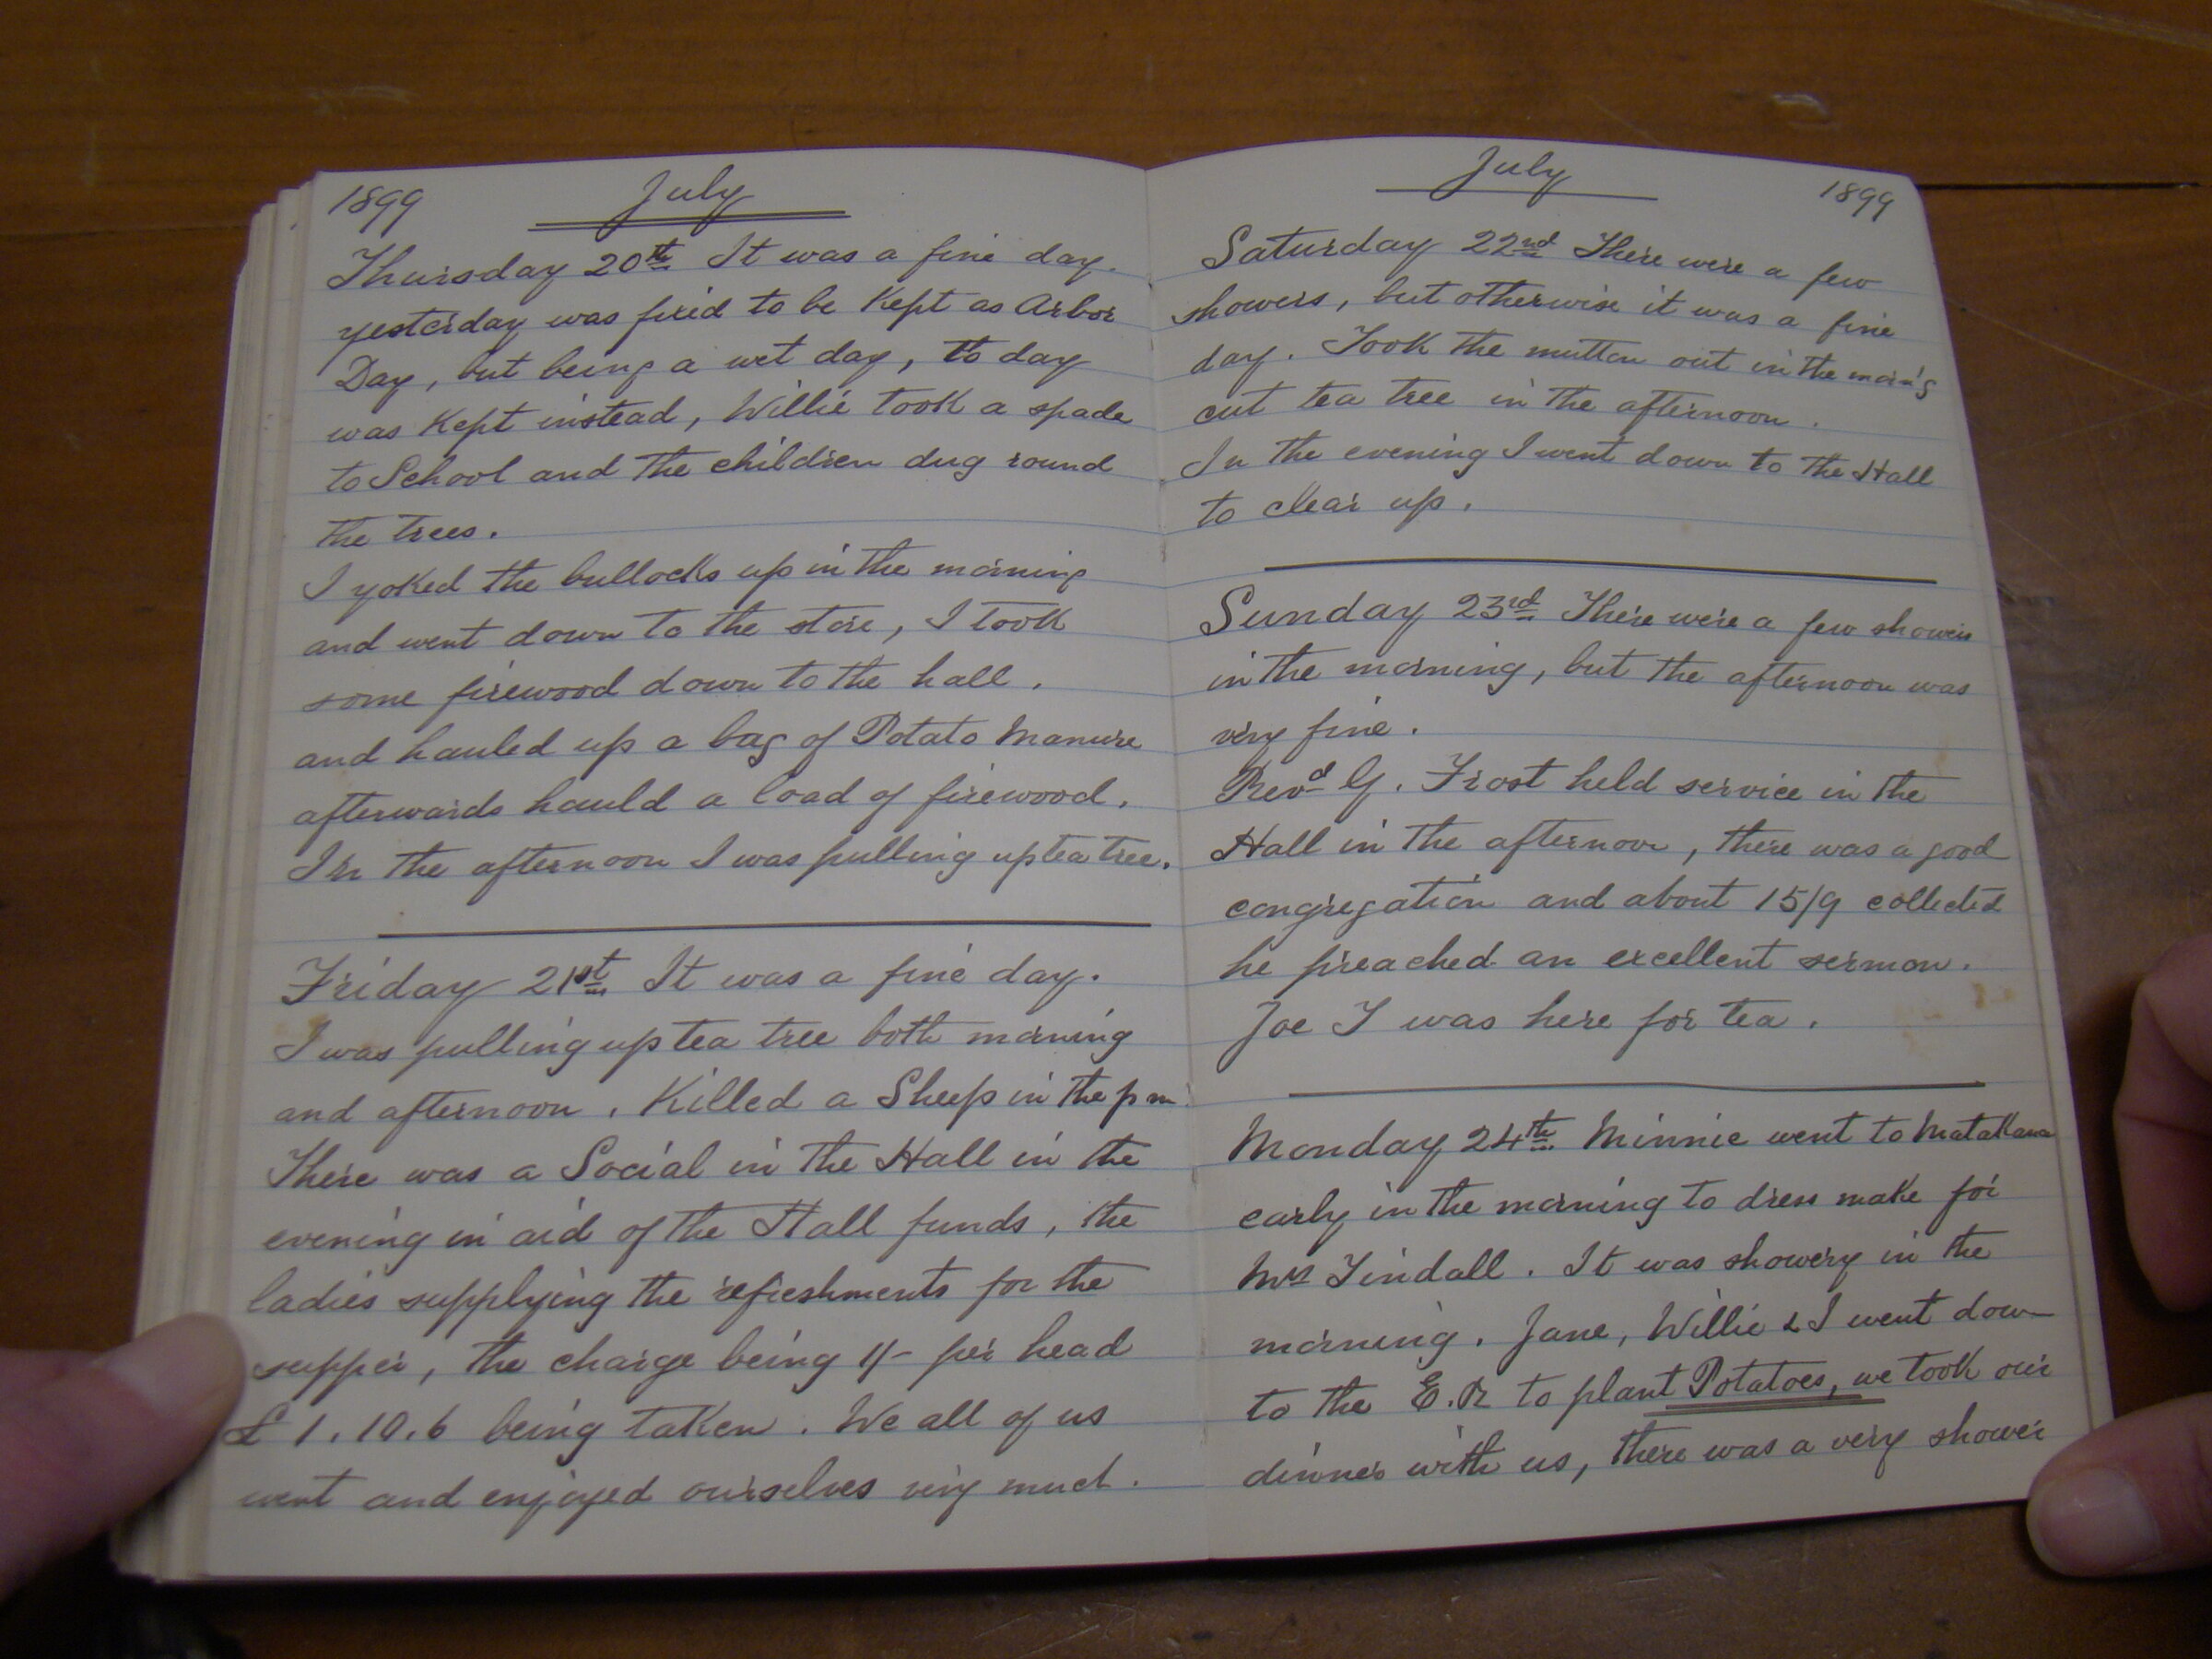 1899 July
Thursday 20th It was a fine day.
yesterday was fixed to be Kept as Arbor
Day, but being a wet day, to day
was Kept instead, Willie took a spade
to School and the children dug round
the trees.
I yoked the bullocks up in the morning
and went down to the store, I took
some firewood down to the hall.
and hauled up a bag of Potato Manure
afterwards hauld a load of firewood.
In the afternoon I was pulling up tea tree.
Friday 21st It was a fine day.
I was pulling up tea tree both morning
and afternoon. Killed a Sheep in the pm
There was a Social in the Hall in the
evening in aid of the Hall funds, the
ladies supplying the refreshments for the
supper, the charge being 1/- per head
£1.10.6 being taken. We all of us
went and enjoyed ourselves very much.
July 1899
Saturday 22nd There were a few
showers, but otherwise it was a fine
day. Took the mutton out in the morn'g
cut tea tree in the afternoon.
In the evening I went down to the Hall
to clear up.
Sunday 23rd There were a few showers
in the morning, but the afternoon was
very fine.
Revd G. Frost held service in the
Hall in the afternoon, there was a good
congregation and about 15/9 collected
he preached an excellent sermon.
Joe T was here for tea.
Monday 24th Minnie went to Matakana
early in the morning to dress make for
Mrs Tindall. It was showery in the
morning. Jane, Willie & I went down
to the E.R to plant Potatoes, we took our
dinner with us, there was a very shower